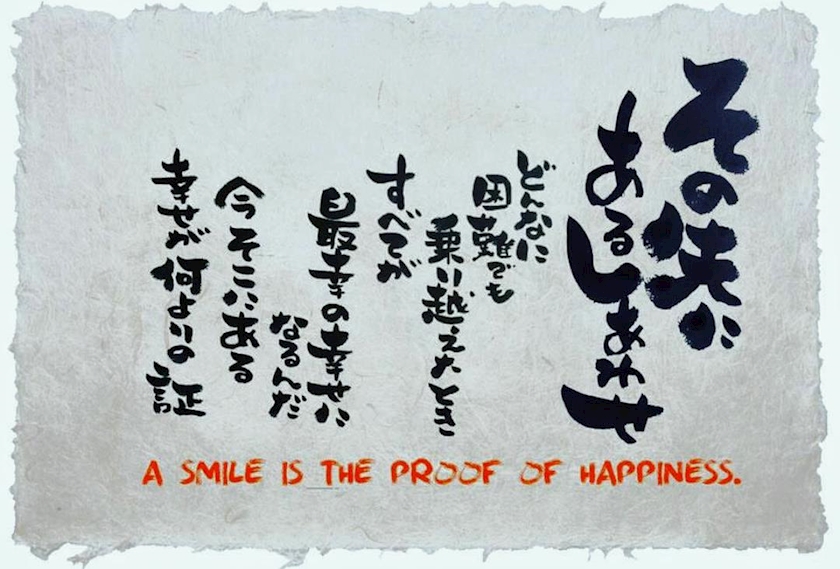 その笑に
あるしあわせ
どんなに
困難でも
乗り越えたとき
すべてが
最幸の幸せに
なるんだ
今そこにある
幸せが何よりの証
A SMILE IS THE PROOF OF HAPPINESS.